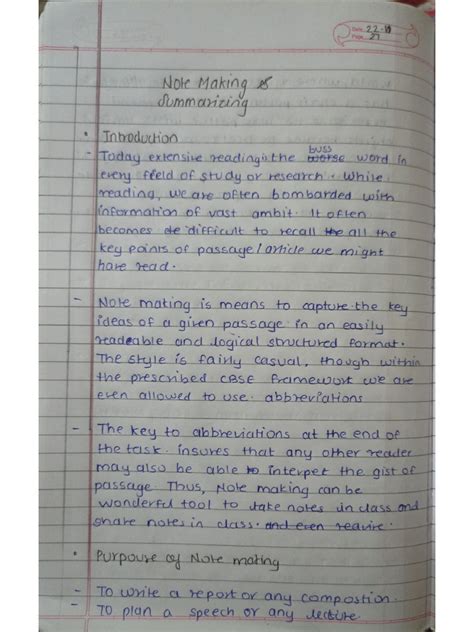 Date 22-11
Page 27
Note Making &
Summarizing
• Introduction
buss
- Today extensive reading is the worse word in
every field of study or research. While
reading, we are often bombarded with
information of vast ambit. It often
becomes de difficult to recall the all the
key points of passage/article we might
have read.
- Note making is means to capture the key
ideas of a given passage in an easily
readeable and logical structured format.
The style is fairly casual, though within
the prescribed CBSE framework we are
even allowed to use abbreviations
- The key to abbreviations at the end of
the task insures that any other reader
may also be able to interpet the gist of
passage. Thus, Note making can be
wonderful tool to take notes in class and
share notes in class. and even require.
• Purpouse of Note making
- To write a report or any compostion.
- To plan a speech or any lecture.